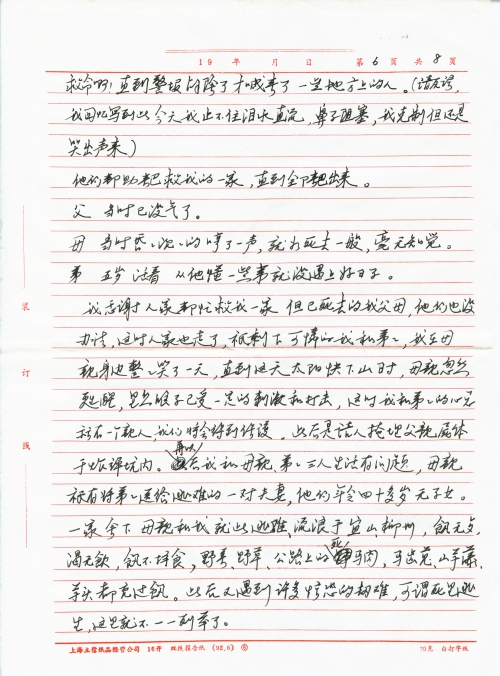 19 年 月 日 第 6 页 共 8 页
救命啊!直到警报解除了才喊来了一些地方上的人。(请原谅,
我回忆写到此今天我止不住泪水直流,鼻子阻塞,我克制但还是
哭出声来)
他们都帮救我的一家,直到全部扒出来。
父 当时已没气了。
母 当时香沉沉的哼了一声,就力死去一般,毫无知觉。
弟 五岁 活着 从他懂一些事就没遇上好日子。
我感谢人家帮忙救我一家 但已死去的我父母,他们也没
办法,这时人家也走了,祇剩下可怜的我和弟弟,我在母
亲身边整整哭了一天,直到这天太阳快下山时,母亲忽然
甦醒,虽然眼子已受一定的刺激和打击,这时我和弟弟的心里
还有一个亲人,我们将会得到保护。此后是请人掩埋父亲尸体
于炸弹坑内。再以后我和母亲、弟弟三人生活有问题,母亲
祇有将弟送给逃难的一对夫妻,他们年令四十多岁无子女。
一家余下母亲和我就此逃难、流浪于宜山柳州,饥无食,
渴无饮,饥不择食,野菜、野草、公路上的死马肉,马齿苋、山芋藤、
芋头都充过饥。此后又遇到许多惊恐的劫难,可谓死里逃
生,这里就不一一列举了。
装
订
线
上海立信纸品经营公司 16开 双线报告纸 (92.6) ⑥ 70克 白打字纸